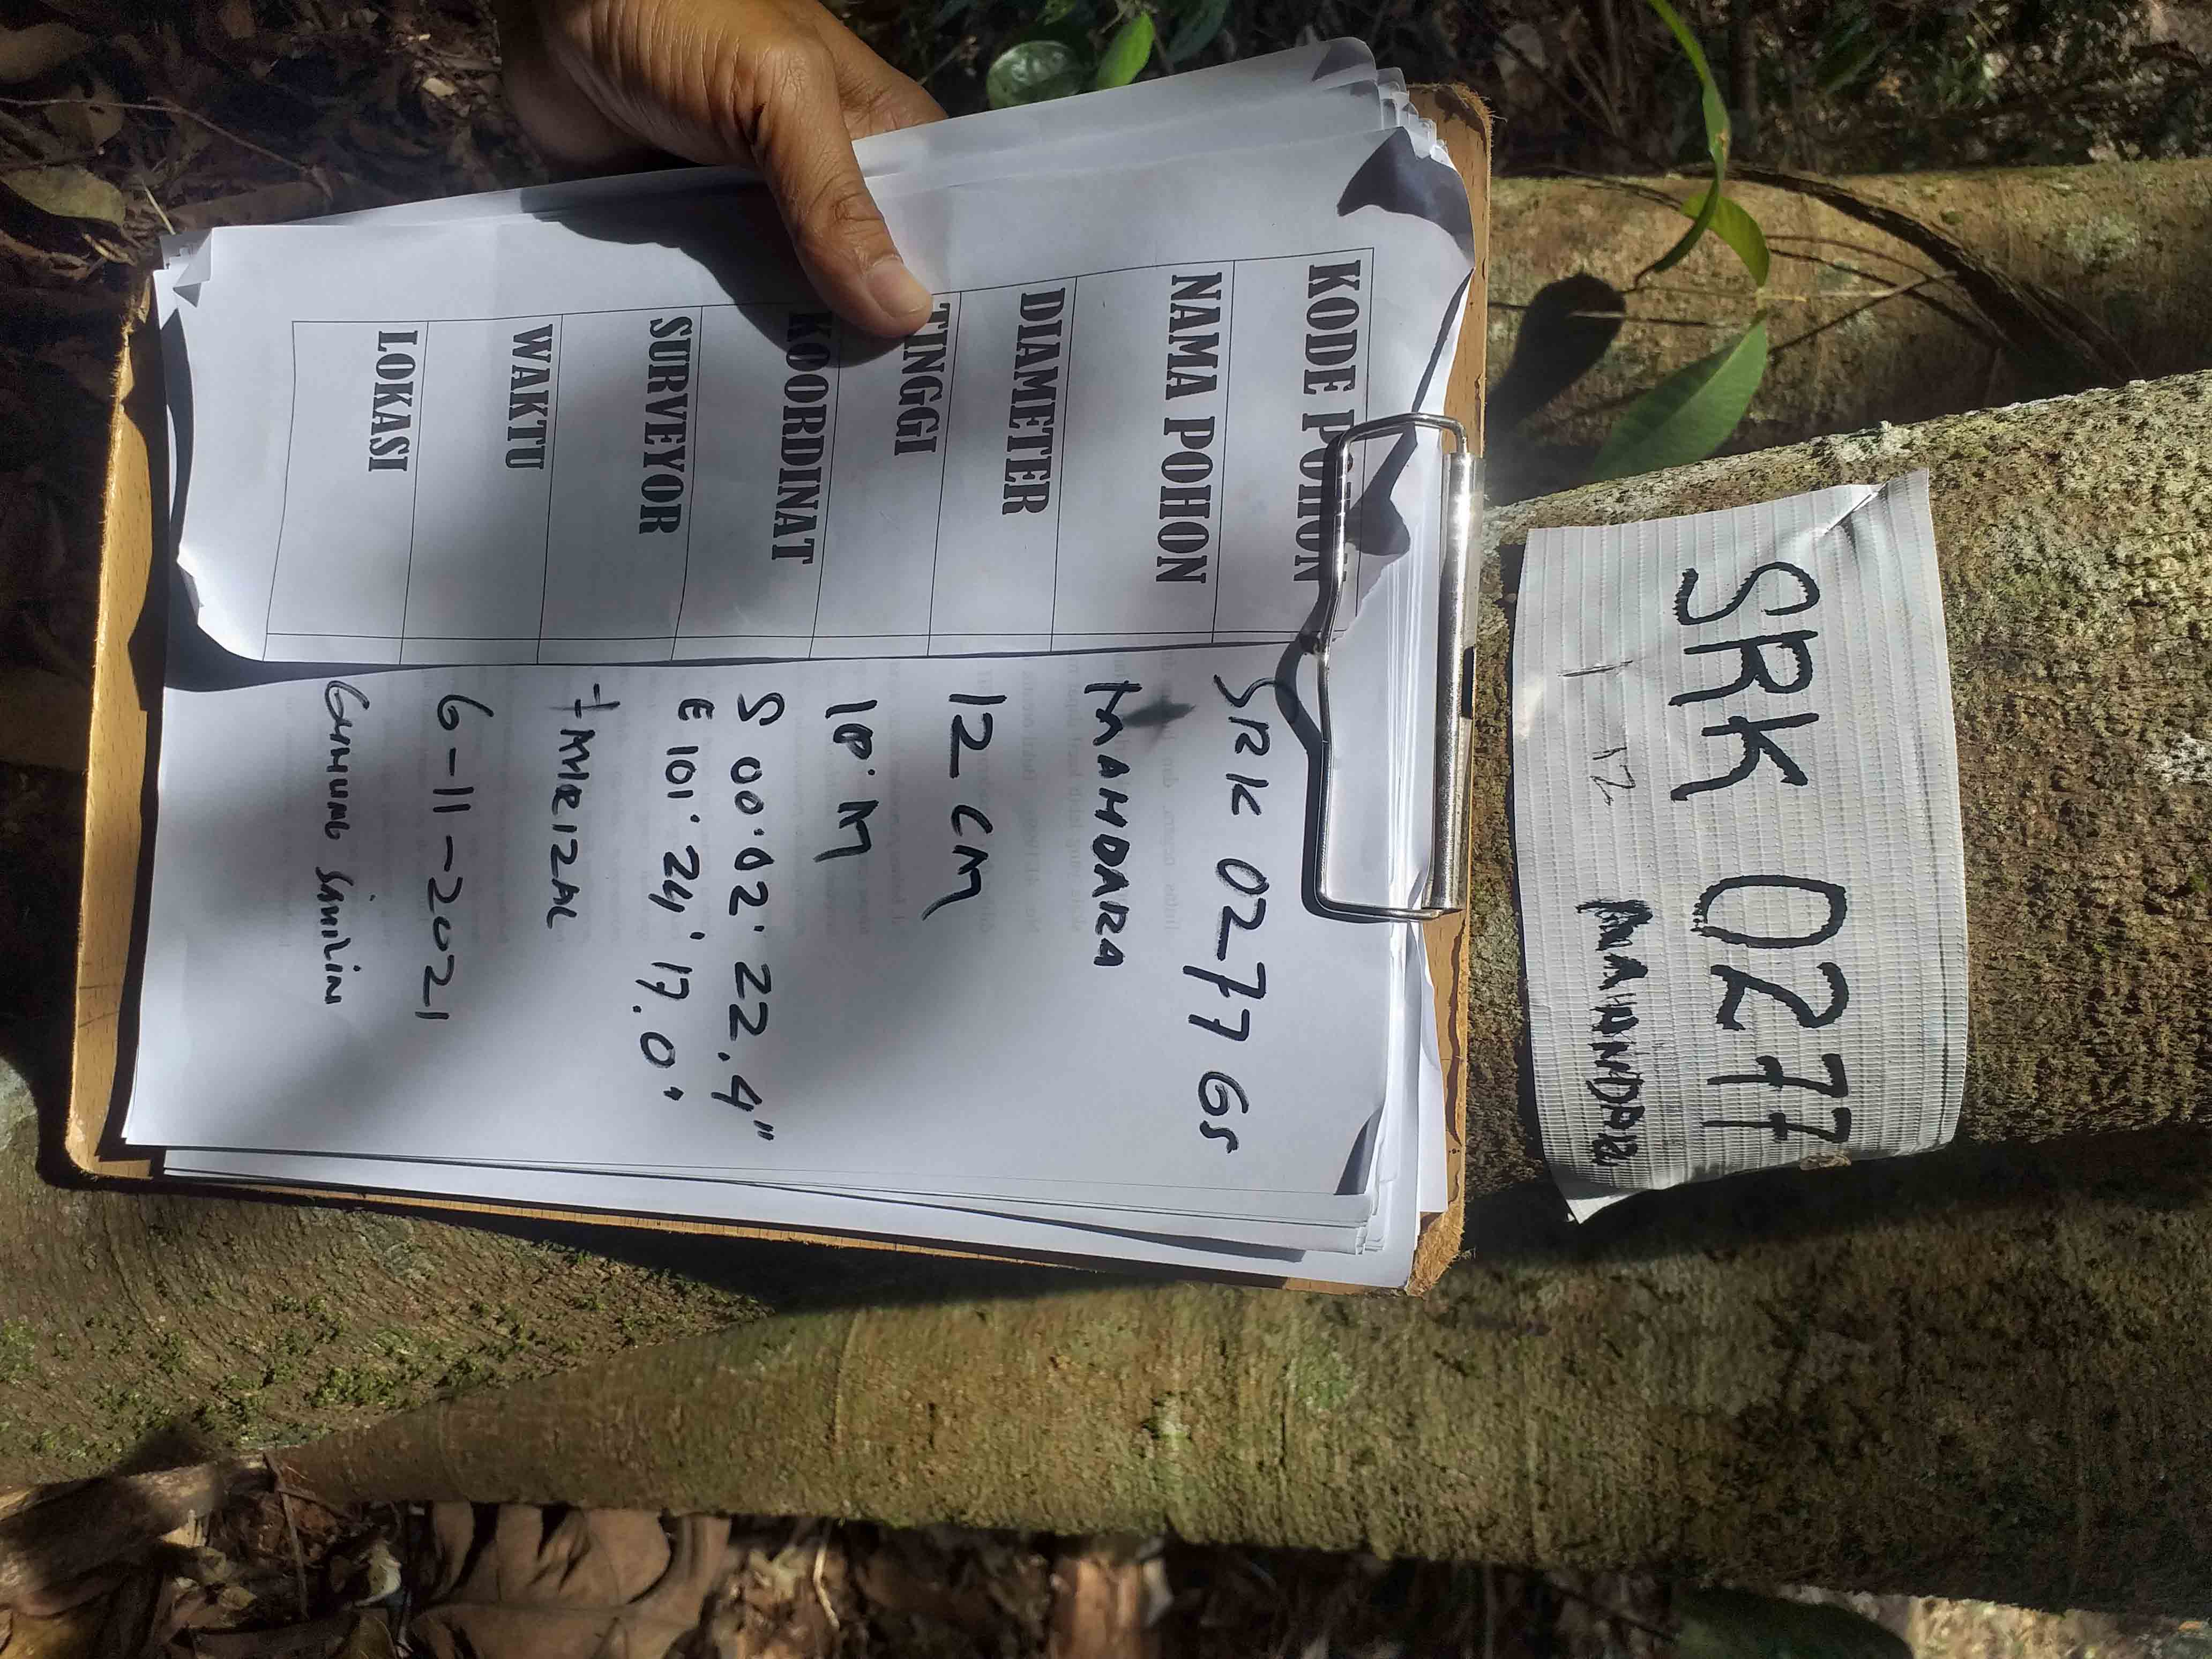 SRK 0277
12 MANDARA
KODE POHON
SRK 0277 GS
NAMA POHON
MANDARA
DIAMETER
12 CM
TINGGI
10 M
KOORDINAT
S 00°02' 22.4"
E 101° 24' 17.0"
SURVEYOR
FAHRIZAL
WAKTU
6-11-2021
LOKASI
GUNUNG SAHILIN